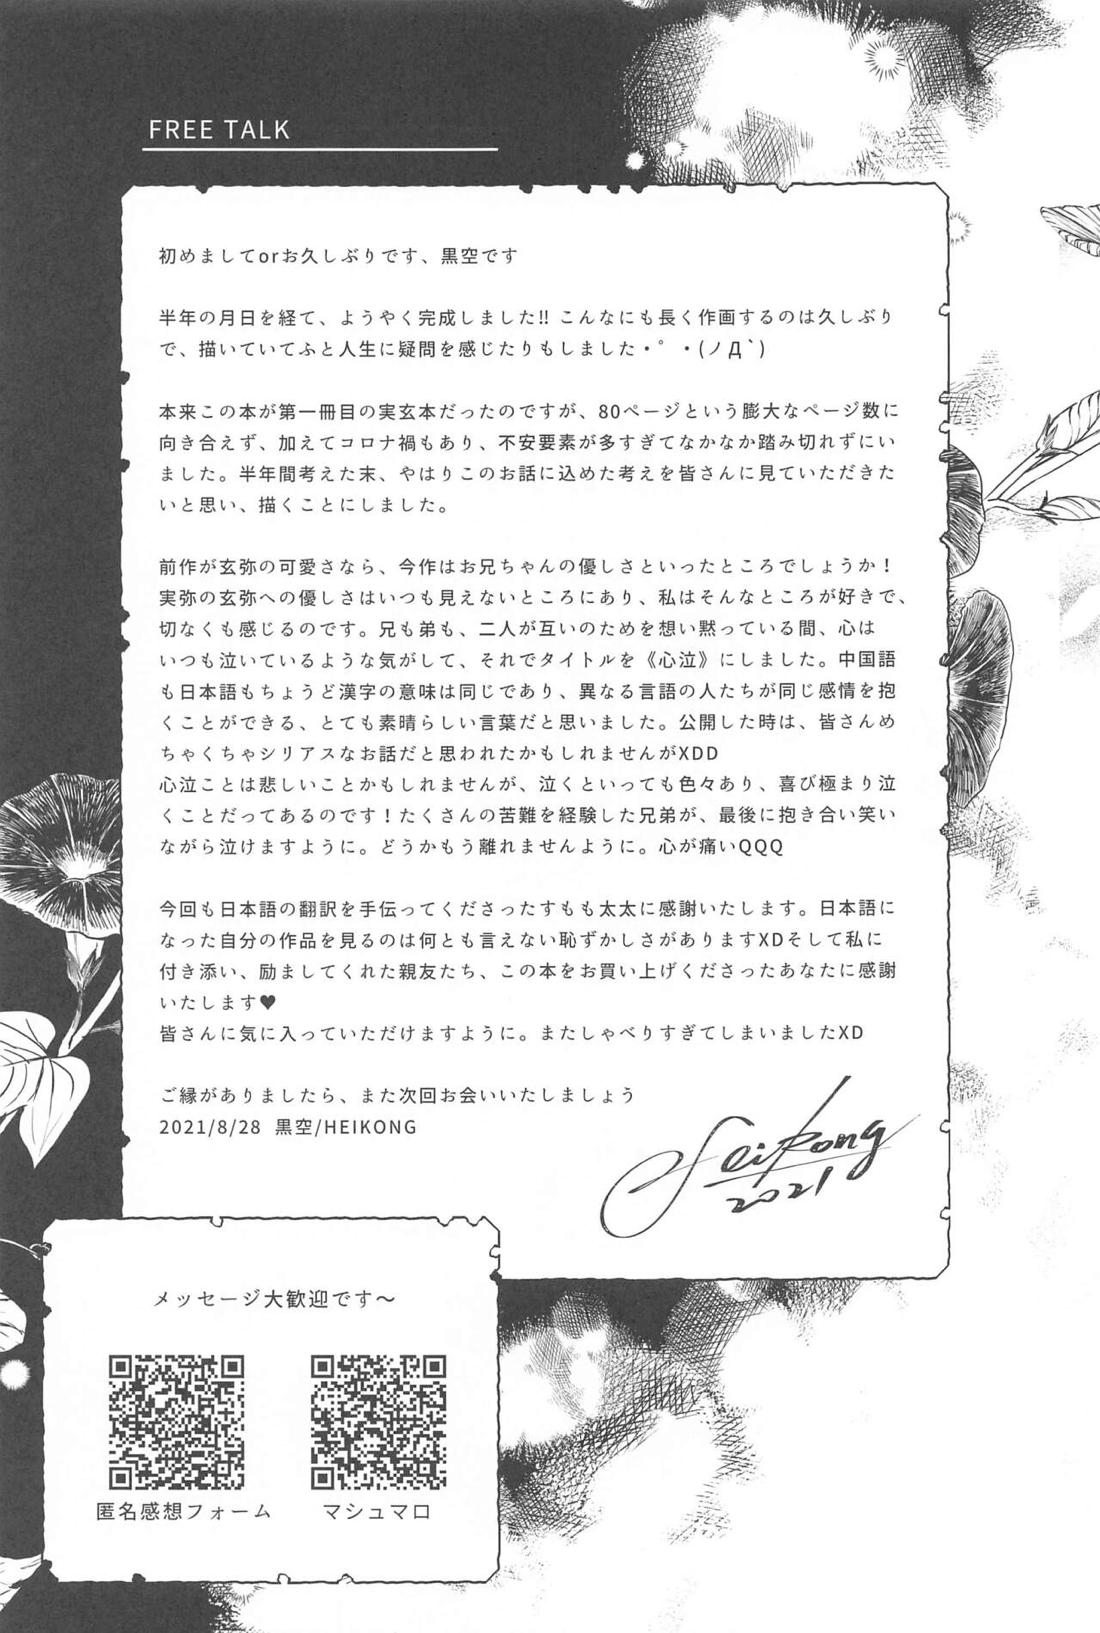 FREE TALK
初めましてorお久しぶりです、黒空です
半年の月日を経て、ようやく完成しました!! こんなにも長く作画するのは久しぶり
で、描いていてふと人生に疑問を感じたりもしました・゜・(ノД`)
本来この本が第一冊目の実玄本だったのですが、80ページという膨大なページ数に
向き合えず、加えてコロナ禍もあり、不安要素が多すぎてなかなか踏み切れずにい
ました。半年間考えた末、やはりこのお話に込めた考えを皆さんに見ていただきた
いと思い、描くことにしました。
前作が玄弥の可愛さなら、今作はお兄ちゃんの優しさといったところでしょうか！
実弥の玄弥への優しさはいつも見えないところにあり、私はそんなところが好きで、
切なくも感じるのです。兄も弟も、二人が互いのためを想い黙っている間、心は
いつも泣いているような気がして、それでタイトルを《心泣》にしました。中国語
も日本語もちょうど漢字の意味は同じであり、異なる言語の人たちが同じ感情を抱
くことができる、とても素晴らしい言葉だと思いました。公開した時は、皆さんめ
ちゃくちゃシリアスなお話だと思われたかもしれませんがXDD
心泣ことは悲しいことかもしれませんが、泣くといっても色々あり、喜び極まり泣
くことだってあるのです！たくさんの苦難を経験した兄弟が、最後に抱き合い笑い
ながら泣けますように。どうかもう離れませんように。心が痛いQQQ
今回も日本語の翻訳を手伝ってくださったすもも太太に感謝いたします。日本語に
なった自分の作品を見るのは何とも言えない恥ずかしさがありますXDそして私に
付き添い、励ましてくれた親友たち、この本をお買い上げくださったあなたに感謝
いたします♥
皆さんに気に入っていただけますように。またしゃべりすぎてしまいましたXD
ご縁がありましたら、また次回お会いいたしましょう
2021/8/28 黒空/HEIKONG
Heikong
2021
メッセージ大歓迎です～
匿名感想フォーム
マシュマロ